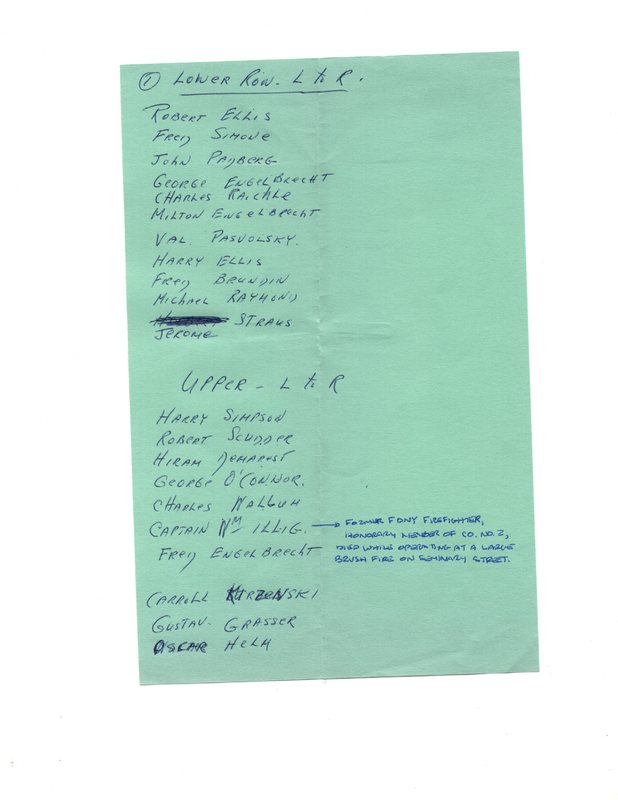 ① LOWER ROW - L to R.
ROBERT ELLIS
FRED SIMONE
JOHN PAJBERG
GEORGE ENGELBRECHT
CHARLES RAICHLE
MILTON ENGELBRECHT
VAL. PASVOLSKY.
HARRY ELLIS
FRED BRUNDIN
MICHAEL RAYMOND
STRAUS
JEROME
UPPER - L to R
HARRY SIMPSON
ROBERT SCUDDER
HIRAM DEMAREST
GEORGE O'CONNOR.
CHARLES
CAPTAIN WM ILLIG. → FORMER FDNY FIREFIGHTER,
HONORARY MEMBER OF CO. NO. 2,
DIED WHILE OPERATING AT A LARGE
BRUSH FIRE ON SEMINARY STREET.
FRED ENGELBRECHT
CARROLL
GUSTAV. GRASSER
OSCAR HELM